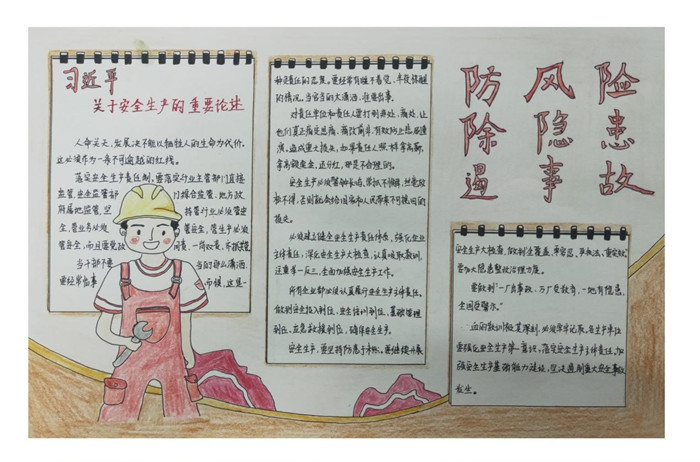 习近平
关于安全生产的重要论述
人命关天,发展决不能以牺牲人的生命为代价。
这必须作为一条不可逾越的红线。
落实安全生产责任制,要落实行业主管部门直接
监管、安全监管部门综合监管、地方政
府属地监管,坚
管行业必须管安
全,管业务必须
管安全,管生产必须
管安全,而且要党政
的情况。当官当的太潇洒,准要出事。
对责任单位和责任人要打到疼处、痛处,让
他们真正痛定思痛、痛改前非,有效防止悲剧重
演。造成重大损失,如果责任人照样拿高薪,
拿高额奖金,还分红,那是不合理的。
安全生产必须警钟长鸣、常抓不懈,丝毫放
松不得,否则就会给国家和人民带来不可挽回的
损失。
必须建立健全安全生产责任体系,强化企业
主体责任,深化安全生产大检查,认真吸取教训,
注重举一反三,全面加强安全生产工作。
所有企业都必须认真履行安全生产主体责任,
做到安全投入到位、安全培训到位、基础管理
到位、应急救援到位,确保安全生产。
安全生产,要坚持防患于未然。要继续开展
防风险
除隐患
遏事故
安全生产大检查,做到"全覆盖、零容忍、严执法、重实效"
要做到"一厂出事故、万厂受教育,一地有隐患、
全国受警示。"
血的教训极其深刻,必须牢牢记取。各生产单位
要强化安全生产第一意识,落实安全生产主体责任,加
强安全生产基础能力建设,坚决遏制重大安全事故
发生。